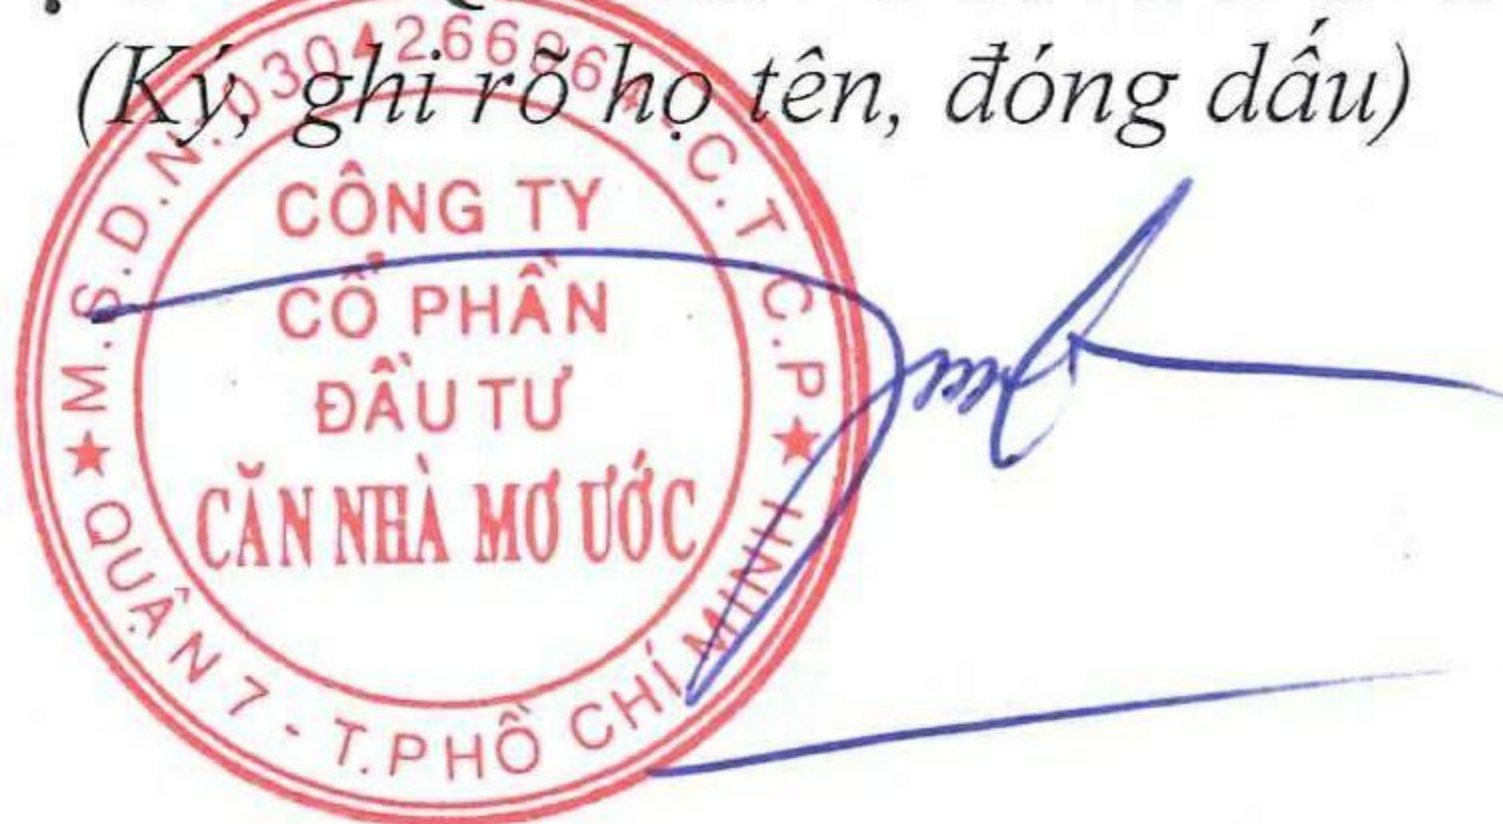 (Ký, ghi rõ họ tên, đóng dấu)
M.S.D.N: C.T.C.P
CÔNG TY
CỔ PHẦN
ĐẦU TƯ
CĂN NHÀ MƠ ƯỚC
QUẬN 7 - T.PHỐ CHÍ MINH